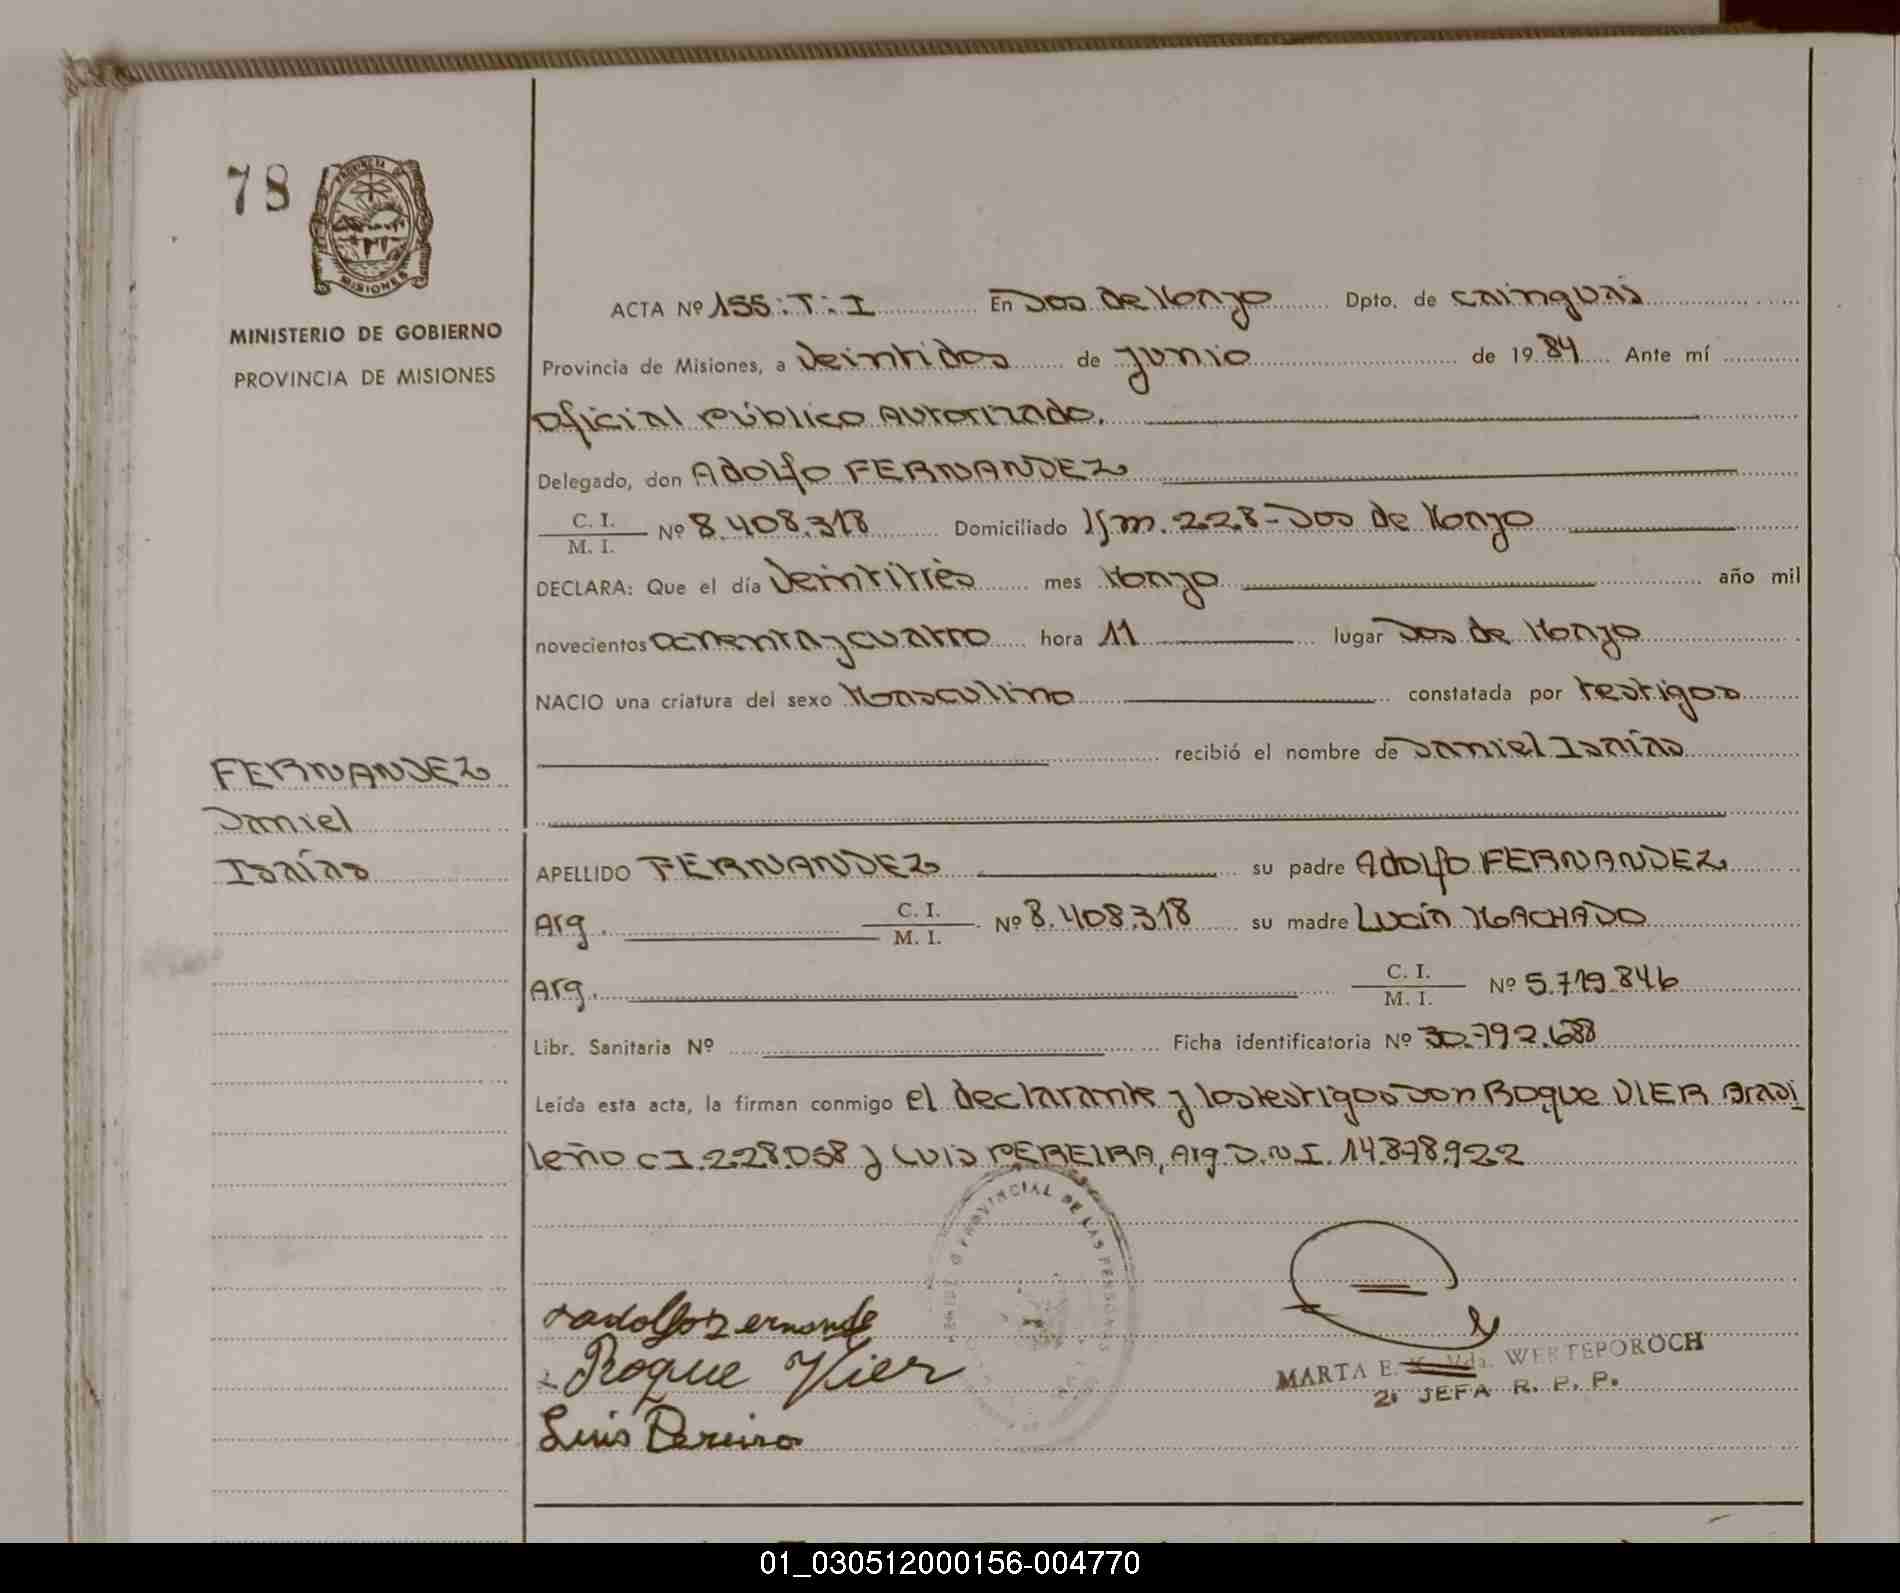 78
PROVINCIA DE
MISIONES
MINISTERIO DE GOBIERNO
PROVINCIA DE MISIONES
ACTA Nº 155:T:I En Dos de Mayo Dpto. de Cainguás
Provincia de Misiones, a Veintidos de junio de 1984 Ante mí
Oficial Público Autorizado.
Delegado, don Adolfo FERNANDEZ
C. I.
M. I. Nº 8.408.318 Domiciliado Km. 228-Dos de Mayo
DECLARA: Que el día Veintitrés mes Mayo año mil
novecientos ochenta y cuatro hora 11 lugar Dos de Mayo
NACIO una criatura del sexo Masculino constatada por testigos
recibió el nombre de Daniel Isaías
FERNANDEZ
Daniel
Isaías
APELLIDO FERNANDEZ su padre Adolfo FERNANDEZ
Arg. C. I.
M. I. Nº 8.408.318 su madre Lucía MACHADO
Arg. C. I.
M. I. Nº 5.719.846
Libr. Sanitaria Nº Ficha identificatoria Nº 30.792.688
Leída esta acta, la firman conmigo el declarante y los testigos Don Roque VIER Brasi
leño C I.228.058 y Luis PEREIRA, Arg. D.N I. 14.878.922
PROVINCIAL DE LAS PERSONAS
Roque Vier
Luis Pereira
MARTA E. Vda. WERTEPOROCH
2ª JEFA R. P. P.
01_030512000156-004770